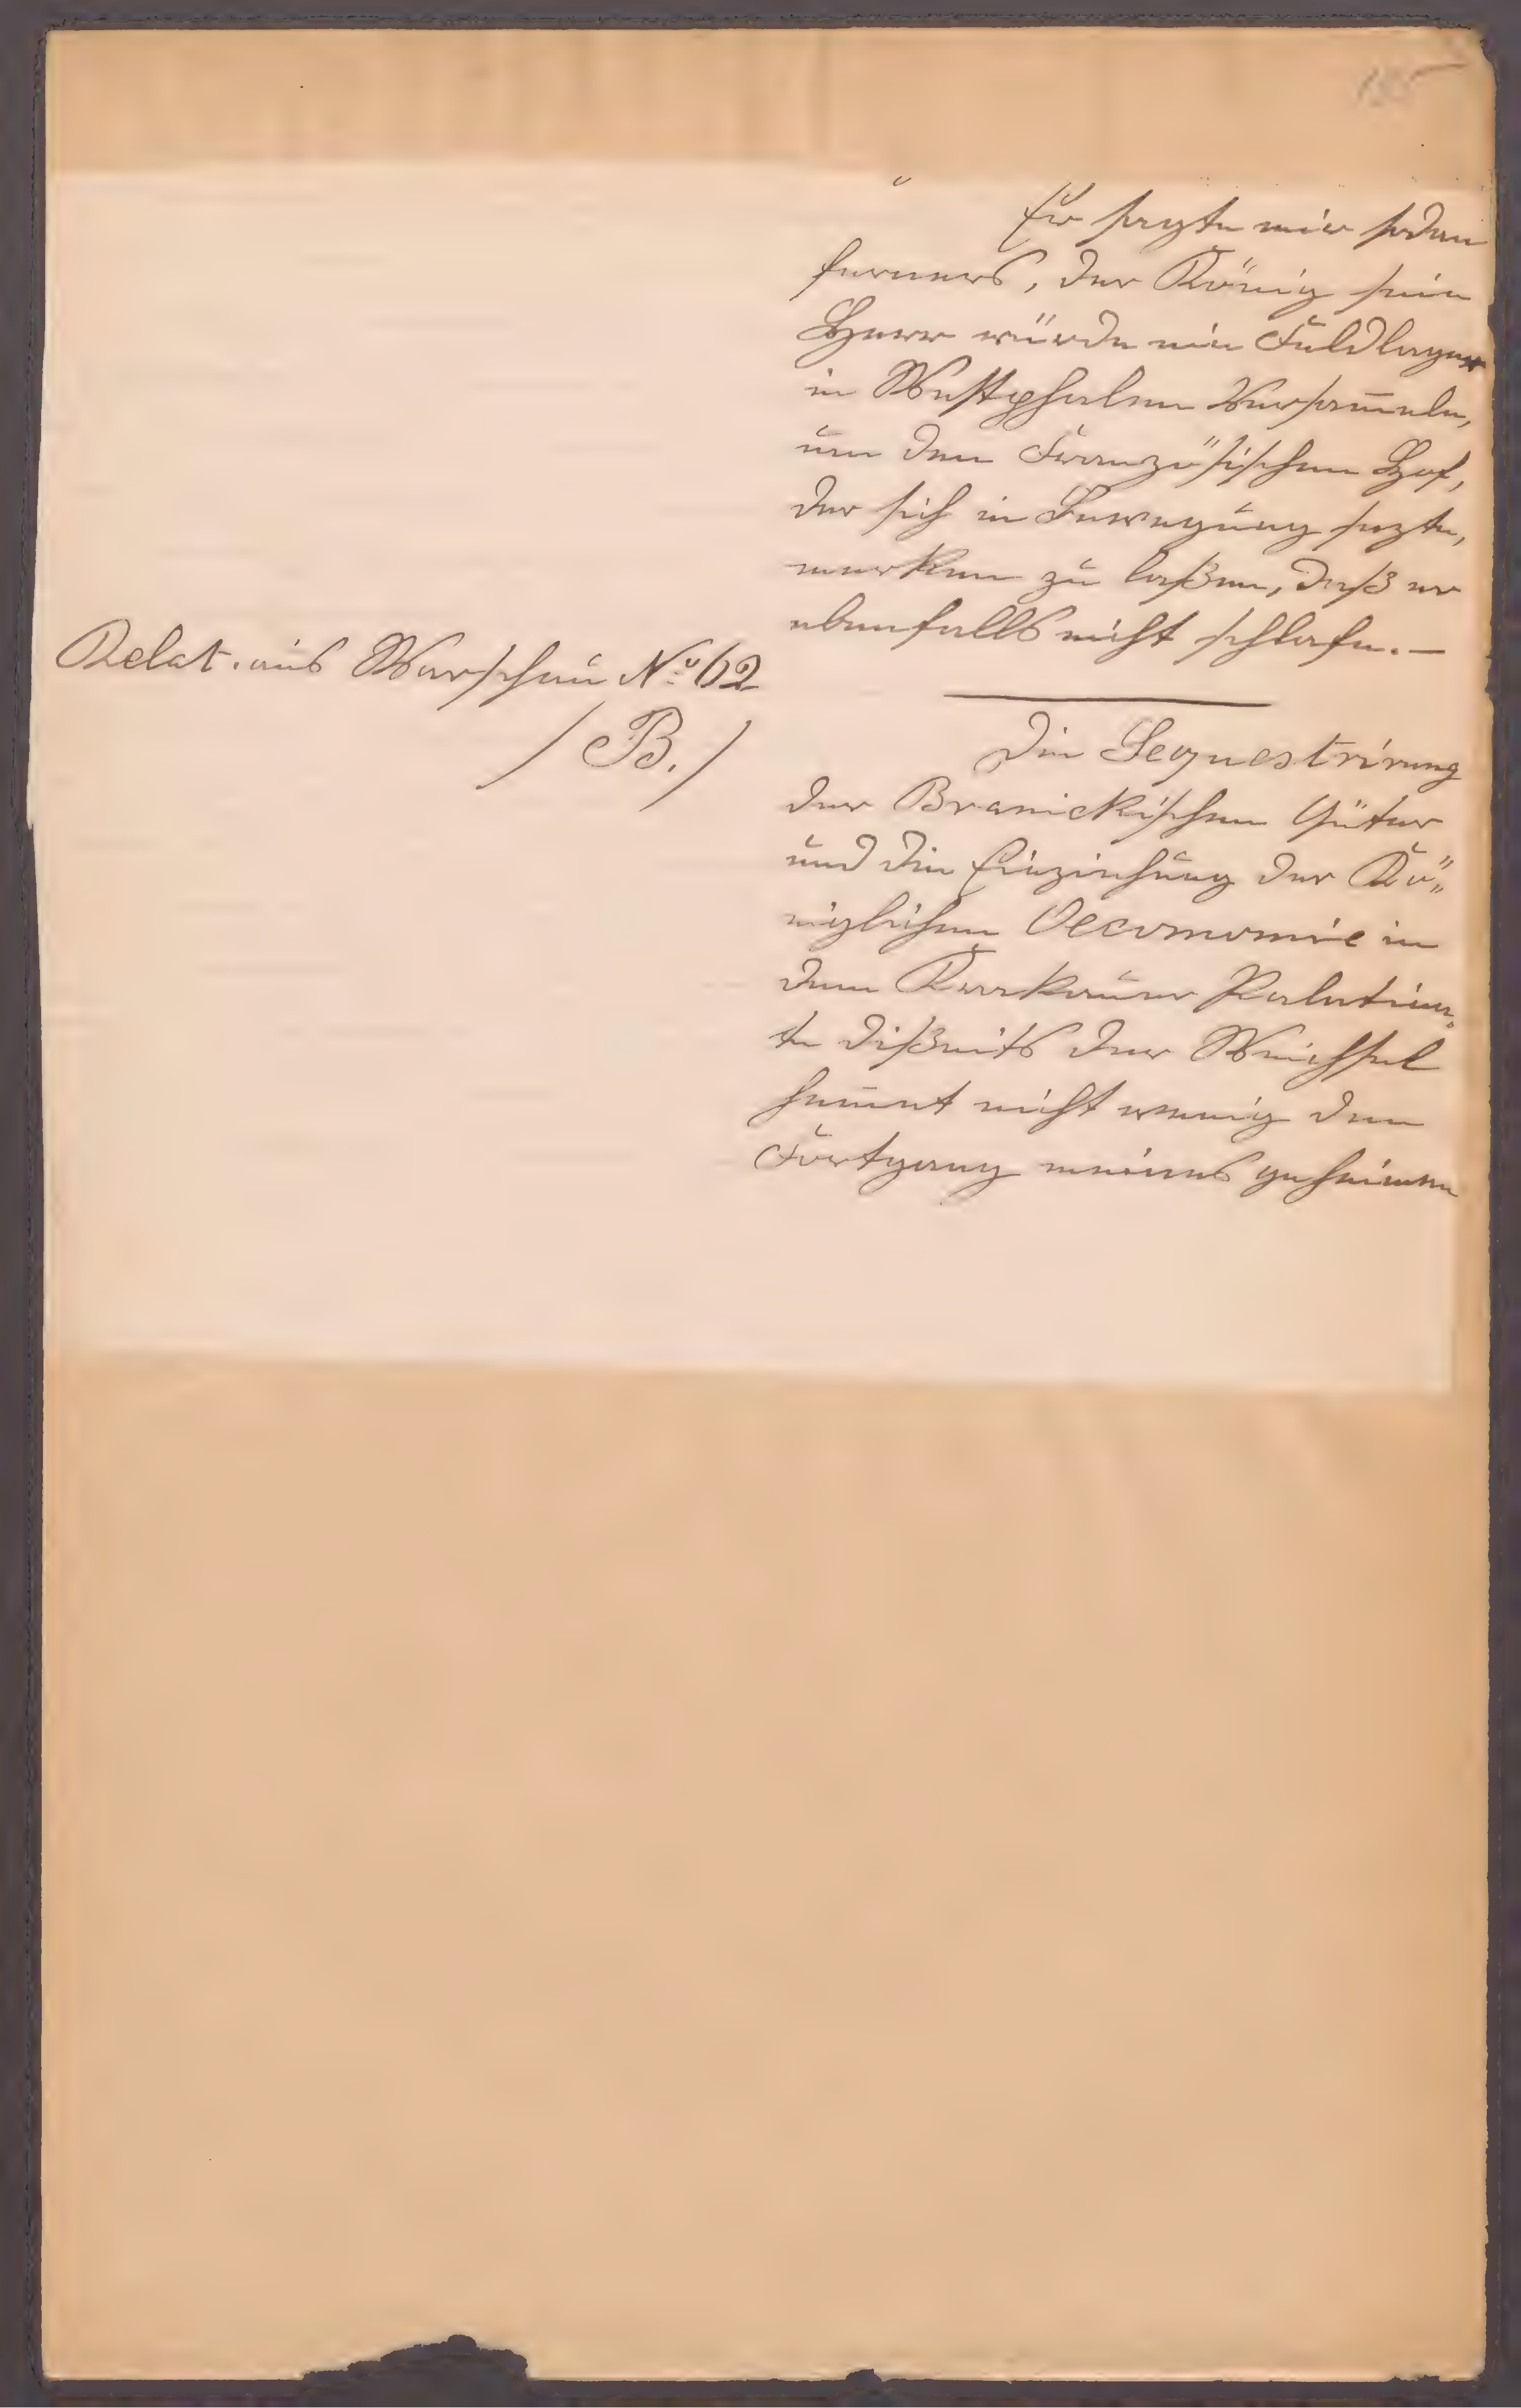 Er sagte mir sodan
ferners, der König sein
Herr würde ein Feldlager
in Westphalen Versam̄eln,
um dem Französischen Hof,
der sich in Bewegung sezte,
merken zu laßen, daß er
ebenfalls nicht schlafe. —
Relat. aus Warschau No: 62
/ B. /
Die Sequestrirung
der Branickischen Güter
und die Einziehung der Kö„
niglichen Oeconomie in
dem Krakauer Palatina„
te dißeits der Weichsel
hem̄et nicht wenig den
Fortgang meines geheimen